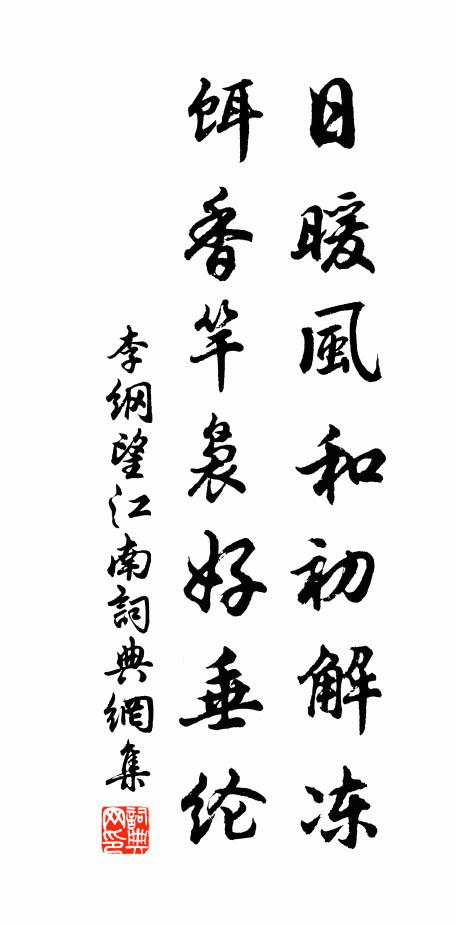 日暖風和初解冻
餌香竿袅好垂纶
李纲望江南詞典網集
詞典网印